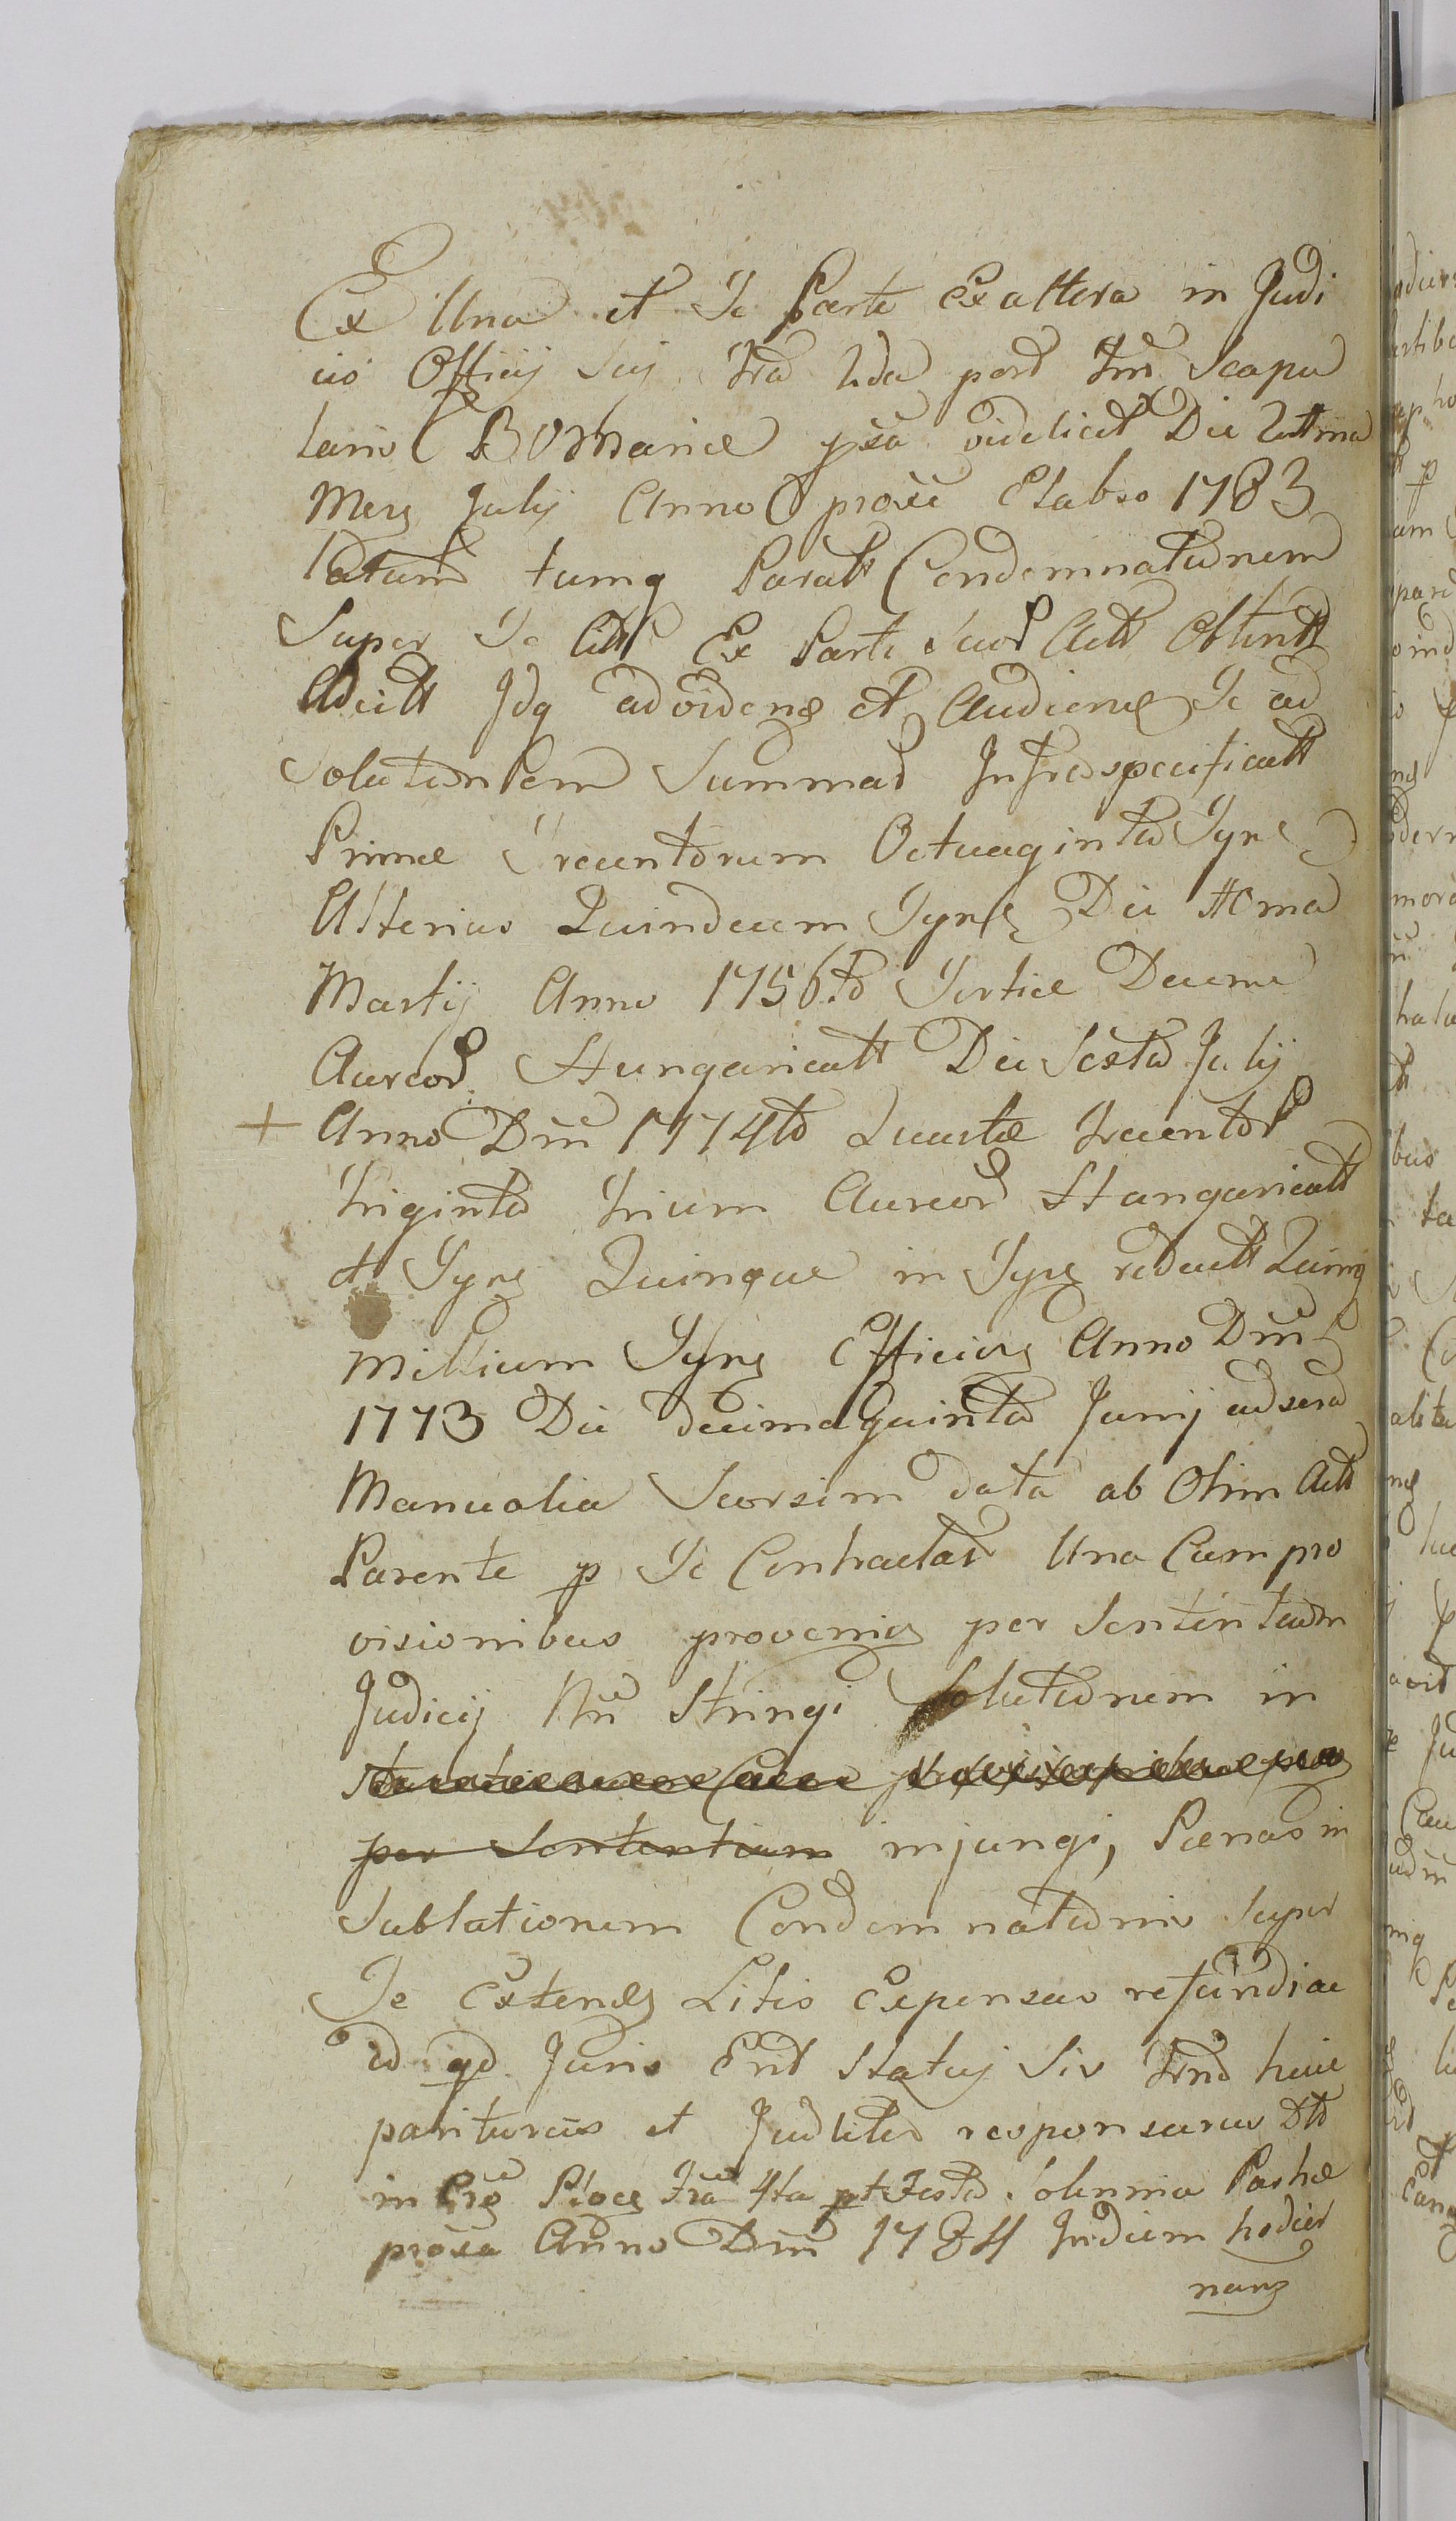 Ex Una et Te Parte Ex altera in Judi
cio Officij Sui fra 2da post Fm Scapu
laris B V Mariae pxa videlicet Die 21ma
Mens Julij Anno proxe Elabso 1783
latum tumq Paratt Condemnationem
Super Te Citt Ex Parte Suor Actt Obtentt
Adcitt Idq ad vidend et Audiend Te ad
Solutionem Summar Infraspecificatt
Primae Trecentorum Octuaginta Tynf
Alterius Quindecem Tynf Die
Martij Anno 1756to Tertiae Decem
Aureor Hungaricatt Die Sexta Julij
+ Anno Dni 1774to Quartae trecentor
triginta trium Aureor Hungaricatt
et Tynf Quinque in Tynf reductt Quinq
millium Tynf Efficien Anno Dni
1773 Die decima Quinta Junij ad sera
Manualia Seorsim data ab Olim Act
Parente p Te Contractar Una Cum pro
visionibus provenien per Sententiam
Judicij Nri Stringi Solutionem in
per Sententiam injungi, Paenas in
Sublationem Condemnationis super
Te Extenden Litis Expensas refundi ac
id qd Juris Erit Statuj Sis trno huic
pariturus et Judliter responsurus Dtt
in Cre Ploce fra 4ta pt Festa Solemnia Paschae
proxa Anno Dni 1784 In diem hodier
nam